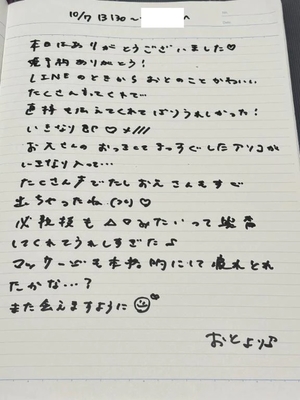 10/7 13:30〜
本日はありがとうございました♡
予約ありがとう!
LINEのときからおとのことかわいい
たくさん言ってくれて…
気持ち伝えてくれてばりうれしかった!
いきなり
おえさんの まっすぐした
いきなり入って…
たくさん声でたしおえさんもすぐ
出ちゃったね(つ)♡
必殺技も みたいって興奮
してくれてうれしすぎたよ
マッサージも本格的にして疲れとれ
たかな…?
また会えますように
おとより♪